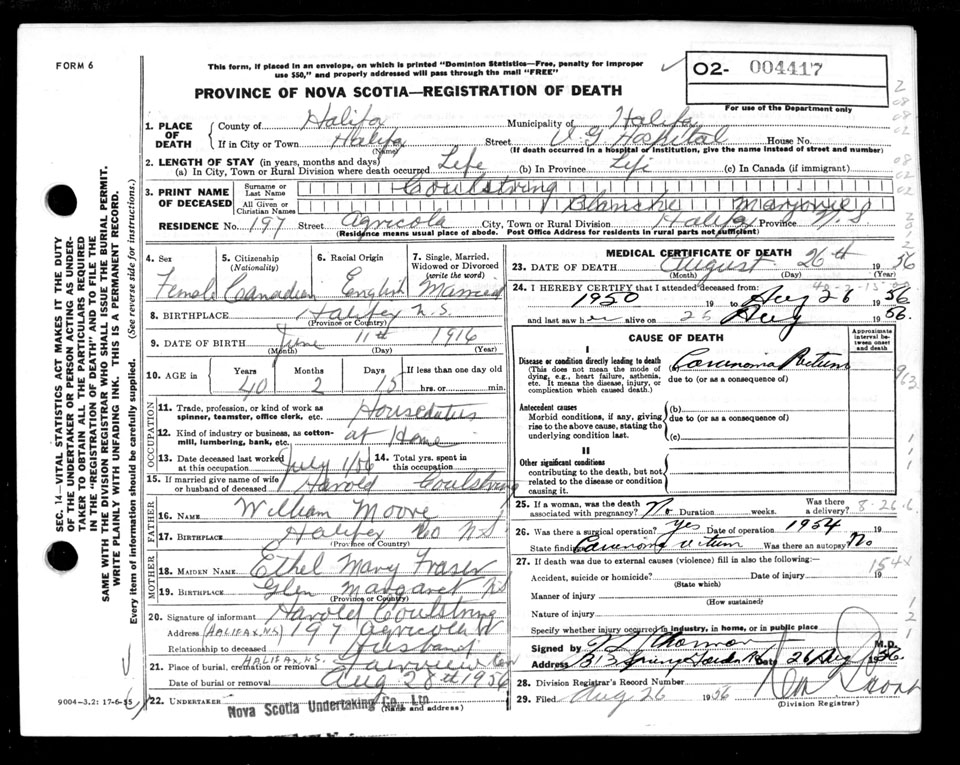 FORM 6
This form, if placed in an envelope, on which is printed "Dominion Statistics—Free, penalty for improper
use $50," and properly addressed will pass through the mail "FREE"
O2- 004417
For use of the Department only
PROVINCE OF NOVA SCOTIA—REGISTRATION OF DEATH
1. PLACE OF DEATH
County of Halifax Municipality of Halifax
If in City or Town Halifax Street V G Hospital House No.
(Name) (If death occurred in a hospital or institution, give the name instead of street and number)
2. LENGTH OF STAY (in years, months and days)
(a) In City, Town or Rural Division where death occurred Life (b) In Province Life (c) In Canada (if immigrant)
3. PRINT NAME OF DECEASED
Surname or Last Name Coulstring
All Given or Christian Names Blanche Marjorie
RESIDENCE No. 197 Street Agricola City, Town or Rural Division Halifax Province N.S.
(Residence means usual place of abode. Post Office Address for residents in rural parts not sufficient)
4. Sex Female
5. Citizenship (Nationality) Canadian
6. Racial Origin English
7. Single, Married, Widowed or Divorced (write the word) Married
8. BIRTHPLACE Halifax N.S.
(Province or Country)
9. DATE OF BIRTH June 11th 1916
(Month) (Day) (Year)
10. AGE in Years 40 Months 2 Days 15 If less than one day old hrs. or min.
OCCUPATION
11. Trade, profession, or kind of work as spinner, teamster, office clerk, etc. Houseduties
12. Kind of industry or business, as cotton-mill, lumbering, bank, etc. at Home
13. Date deceased last worked at this occupation July 1/56 14. Total yrs. spent in this occupation
15. If married give name of wife or husband of deceased Harold Coulstring
FATHER
16. NAME William Moore
17. BIRTHPLACE Halifax Co N.S.
(Province or Country)
MOTHER
18. MAIDEN NAME Ethel Mary Fraser
19. BIRTHPLACE Glen Margaret N.S
(Province or Country)
20. Signature of informant Harold Coulstring
Address (HALIFAX, N.S.) 197 Agricola St
Relationship to deceased Husband
21. Place of burial, cremation or removal HALIFAX, N.S. Fairview Cem
Date of burial or removal Aug 28th 1956
22. UNDERTAKER Nova Scotia Undertaking Co., Ltd
(Name and Address)
MEDICAL CERTIFICATE OF DEATH
23. DATE OF DEATH August 26th 1956
(Month) (Day) (Year)
24. I HEREBY CERTIFY that I attended deceased from
1950 19 to Aug 26 1956
and last saw her alive on 25 Aug 1956.
CAUSE OF DEATH
Approximate interval between onset and death
I
Disease or condition directly leading to death
(This does not mean the mode of dying, e.g., heart failure, asthenia, etc. It means the disease, injury, or complication which caused death.)
(a) Carcinoma Rectum
due to (or as a consequence of)
Antecedent causes
Morbid conditions, if any, giving rise to the above cause, stating the underlying condition last.
(b)
due to (or as a consequence of)
(c)
II
Other significant conditions contributing to the death, but not related to the disease or condition causing it.
25. If a woman, was the death associated with pregnancy? No Duration weeks. Was there a delivery?
8-26-6
26. Was there a surgical operation? Yes Date of operation 1954 19
State findings Carcinoma Rectum Was there an autopsy? No
27. If death was due to external causes (violence) fill in also the following:
154x
Accident, suicide or homicide? Date of injury 19
(State which)
Manner of injury
(How sustained)
Nature of injury
Specify whether injury occurred in industry, in home, or in public place
Signed by M.D.
Address 313 Spring Garden Rd Date 26 Aug 1956.
28. Division Registrar's Record Number
29. Filed Aug 26 1956
(Division Registrar)
9004-3.2: 17-6-55
SEC. 14—VITAL STATISTICS ACT MAKES IT THE DUTY
OF THE UNDERTAKER OR PERSON ACTING AS UNDER-
TAKER TO OBTAIN ALL THE PARTICULARS REQUIRED
IN THE "REGISTRATION OF DEATH" AND TO FILE THE
SAME WITH THE DIVISION REGISTRAR WHO SHALL ISSUE THE BURIAL PERMIT.
WRITE PLAINLY WITH UNFADING INK. THIS IS A PERMANENT RECORD.
Every item of information should be carefully supplied. (See reverse side for instructions.)